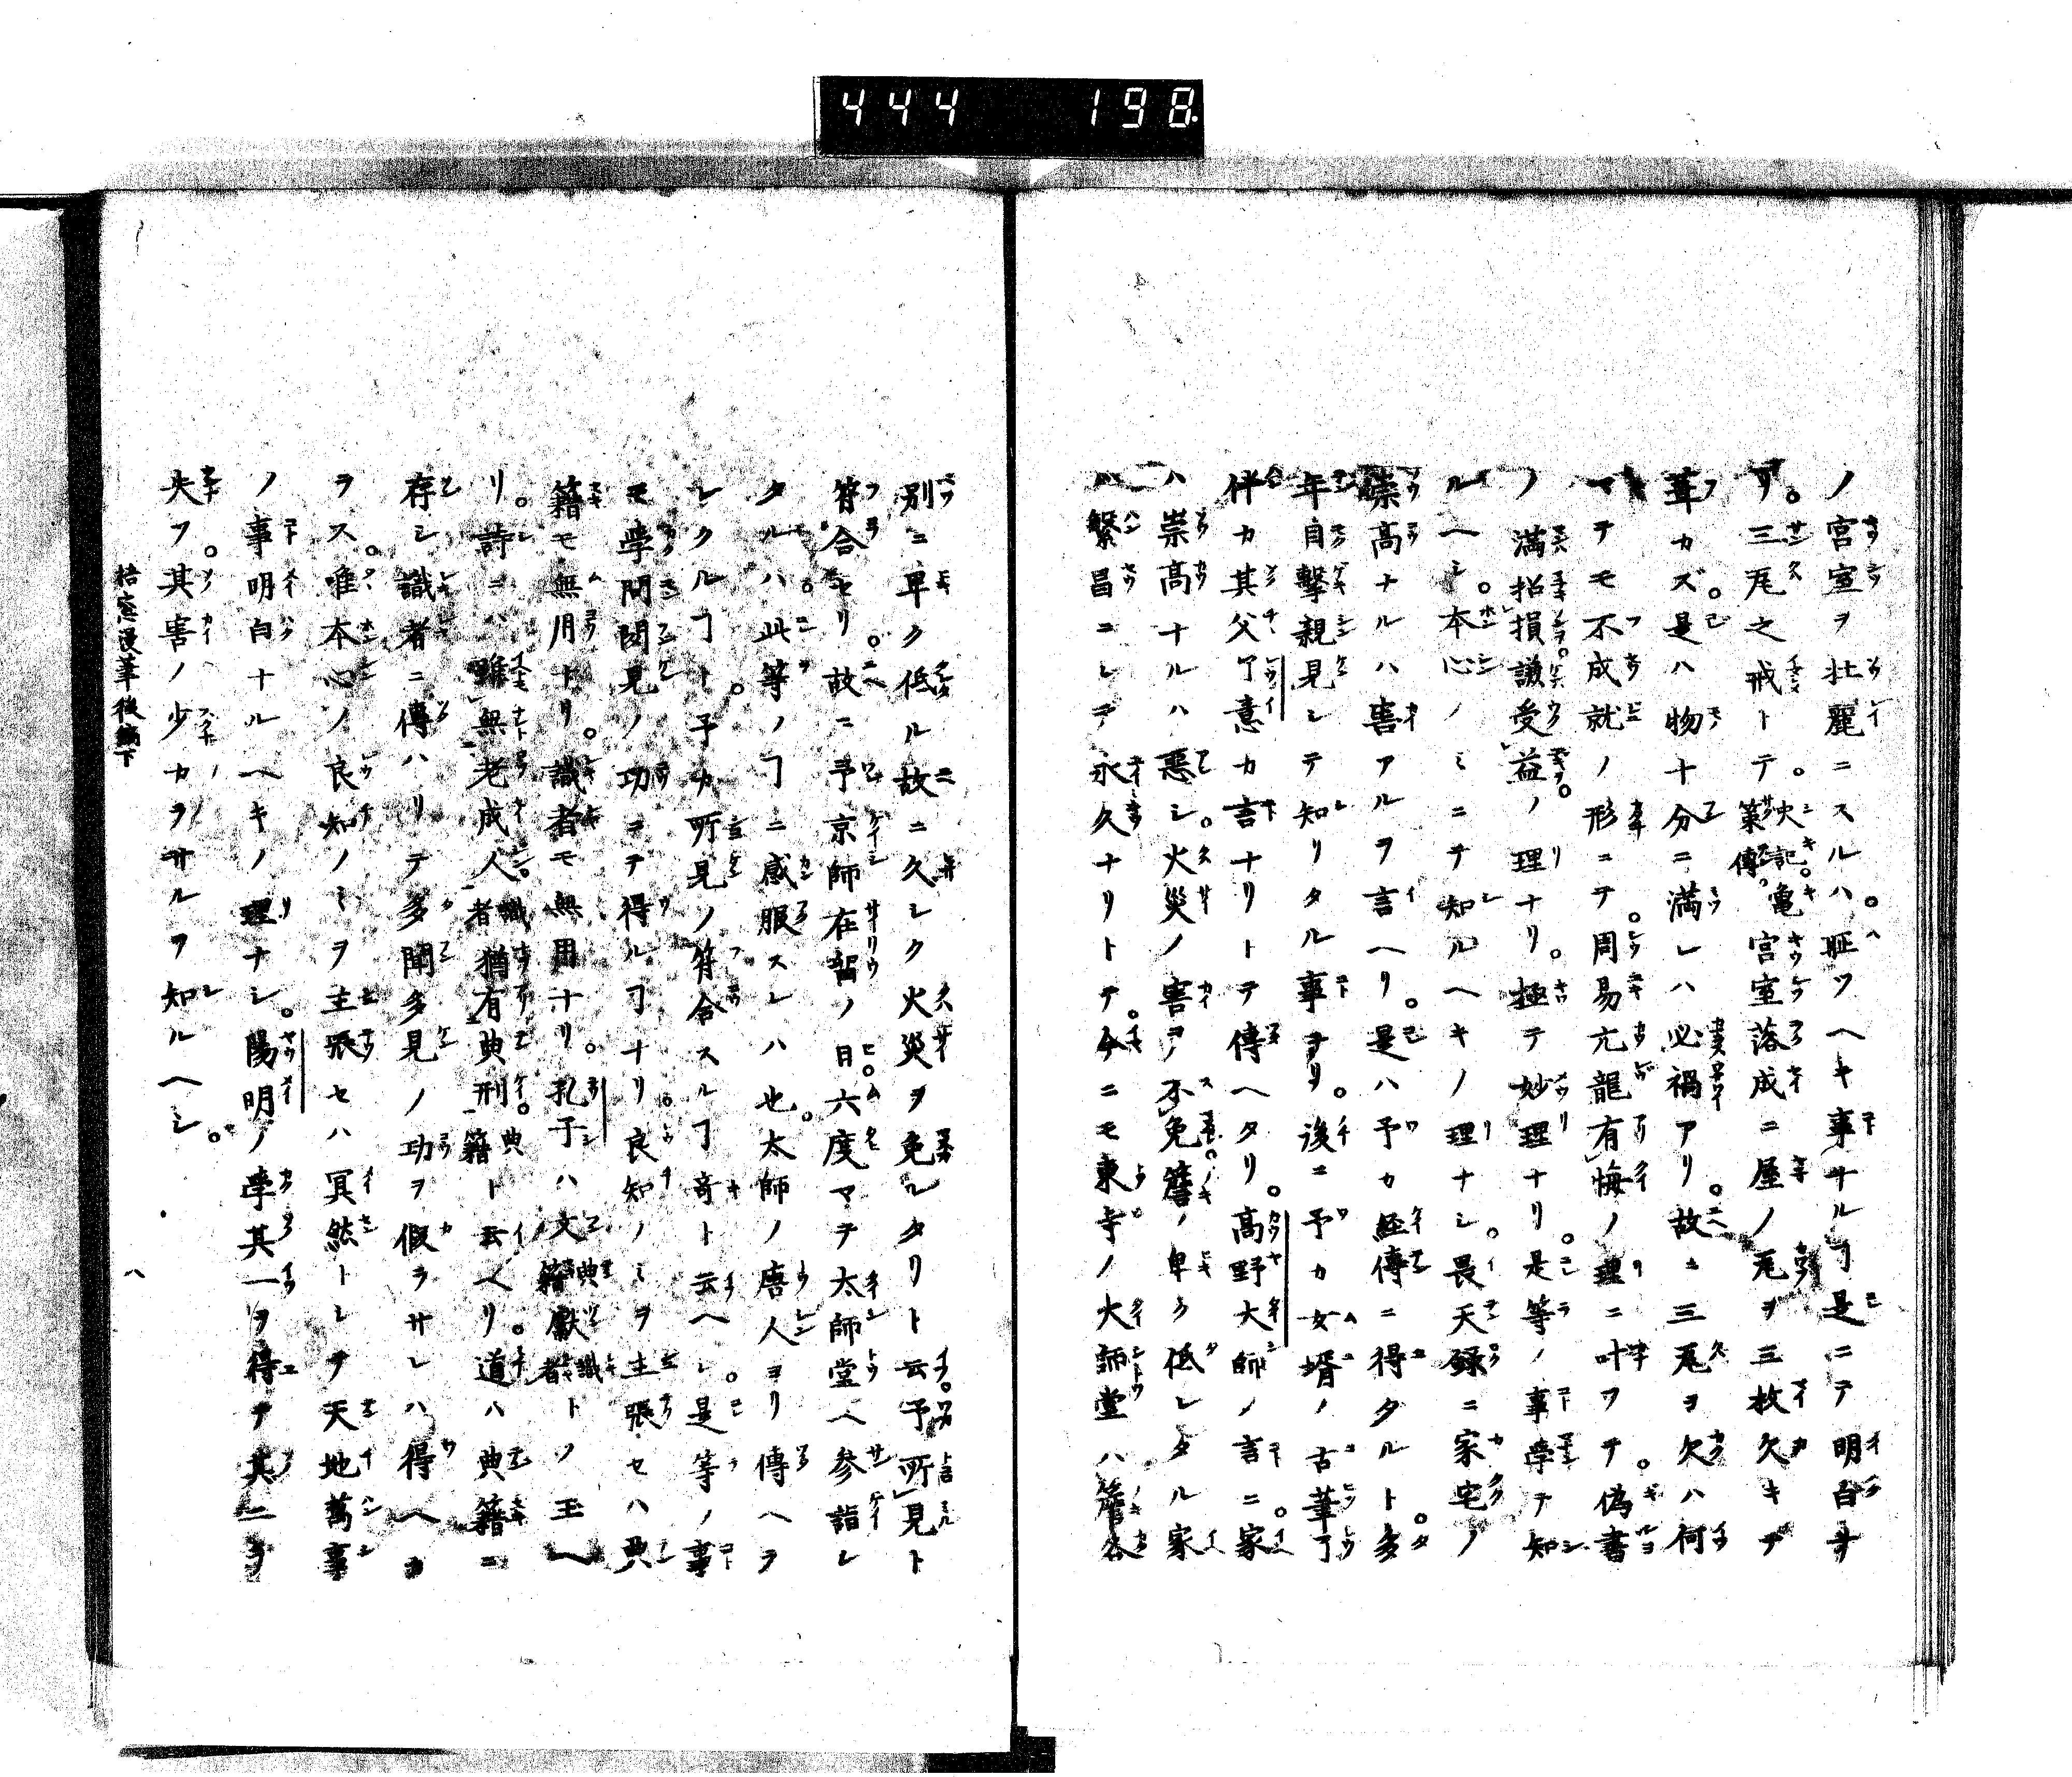 444 198.
ノ宮室ヲ壮麗ニスルハ。耻ツヘキ事ナルヿ是ニテ明白ナ
リ。三瓦之戒トテ。史記。亀策傳。宮室落成ニ屋ノ瓦ヲ三枚欠キテ
葺カズ。是ハ物十分ニ満レハ必禍アリ。故ニ三瓦ヲ欠ハ何
マテモ不成就ノ形ニテ。周易亢龍有悔ノ理ニ叶フテ。偽書
ノ満招損。謙受益。ノ理ナリ。極テ妙理ナリ。是等ノ事学テ知
ルヘシ。本心ノミニテ知ルヘキノ理ナシ。畏天録ニ家宅ノ
崇高ナルハ害アルヲ言ヘリ。是ハ予カ経傳ニ得タルト。多
年自撃親見シテ知リタル事ヲリ。後ニ予カ女壻ノ古筆了
伴カ其父了意カ言ナリトテ傳ヘタリ。高野大師ノ言ニ。家
ハ崇高ナルハ悪シ。火災ノ害ヲ不免。簷ノ卑ク低レタル家
ハ繁昌ニシテ永久ナリトテ。今ニモ東寺ノ大師堂ハ簷各
別ニ卑ク低ル故ニ久シク火災ヲ免レタリト云。予所見ト
符合セリ。故ニ予京師在留ノ日。六度マテ太師堂ヘ参詣シ
タルハ。此等ノヿニ感服スレハ也。太師ノ唐人ヨリ傳ヘラ
レタルヿト。予カ所見ノ符合スルヿ奇ト云ヘシ。是等ノ事
モ学問聞見ノ功ニテ得ルヿナリ。良知ノミヲ主張セハ典
籍モ無用ナリ。識者モ無用ナリ。孔子ハ文典籍献識者トソ玉ヘ
リ。詩ニハ雖無老成人。識者猶有典刑。典籍ト云ヘリ。道ハ典籍ニ
存シ識者ニ傳ハリテ多聞多見ノ功ヲ假ラサレハ得ヘカ
ラス。唯本心ノ良知ノミヲ主張セハ冥然トシテ天地萬事
ノ事明白ナルヘキノ理ナシ。陽明ノ学其一ヲ得テ其二ヲ
失フ。其害ノ少カラサルヲ知ルヘシ。
梧窓漫筆後編下
八